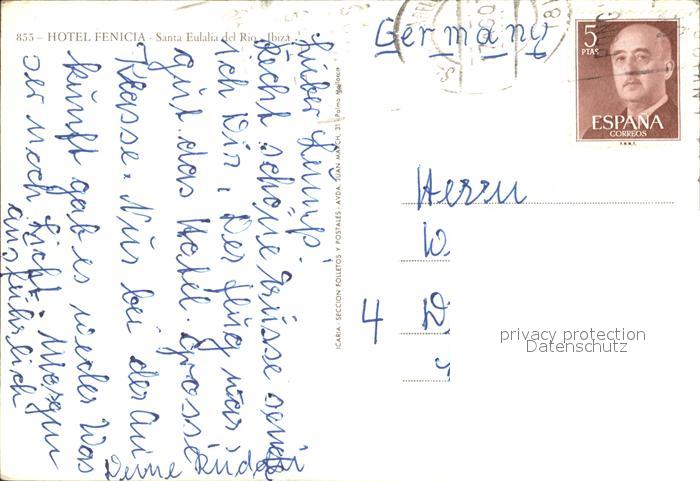 855 – HOTEL FENICIA - Santa Eulalia del Rio - Ibiza
Lieber
Recht schöne Grüsse sendet
ich Dir. Der Flug war
gut. das Hotel Grosse
Klasse. Nur bei der An
kunft gab es wieder Was
ser nach
ausführlich
Deine
ICARIA - SECCION FOLLETOS Y POSTALES - AVDA. JUAN MARCH, 31 - Palma Mallorca
Germany
5
PTAS
ESPAÑA
CORREOS
F.N.M.T.
Herrn
W.
4 D
privacy protection
Datenschutz